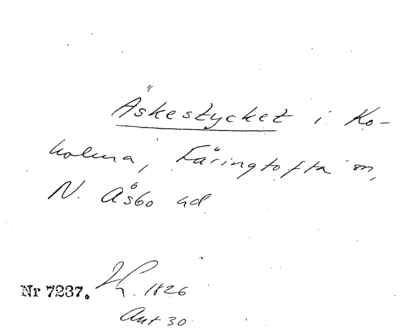 Äskestycket i Ko-
holma, Färingtofta sn,
N. Åsbo hd
Nr 7237. 1826
Ant 30